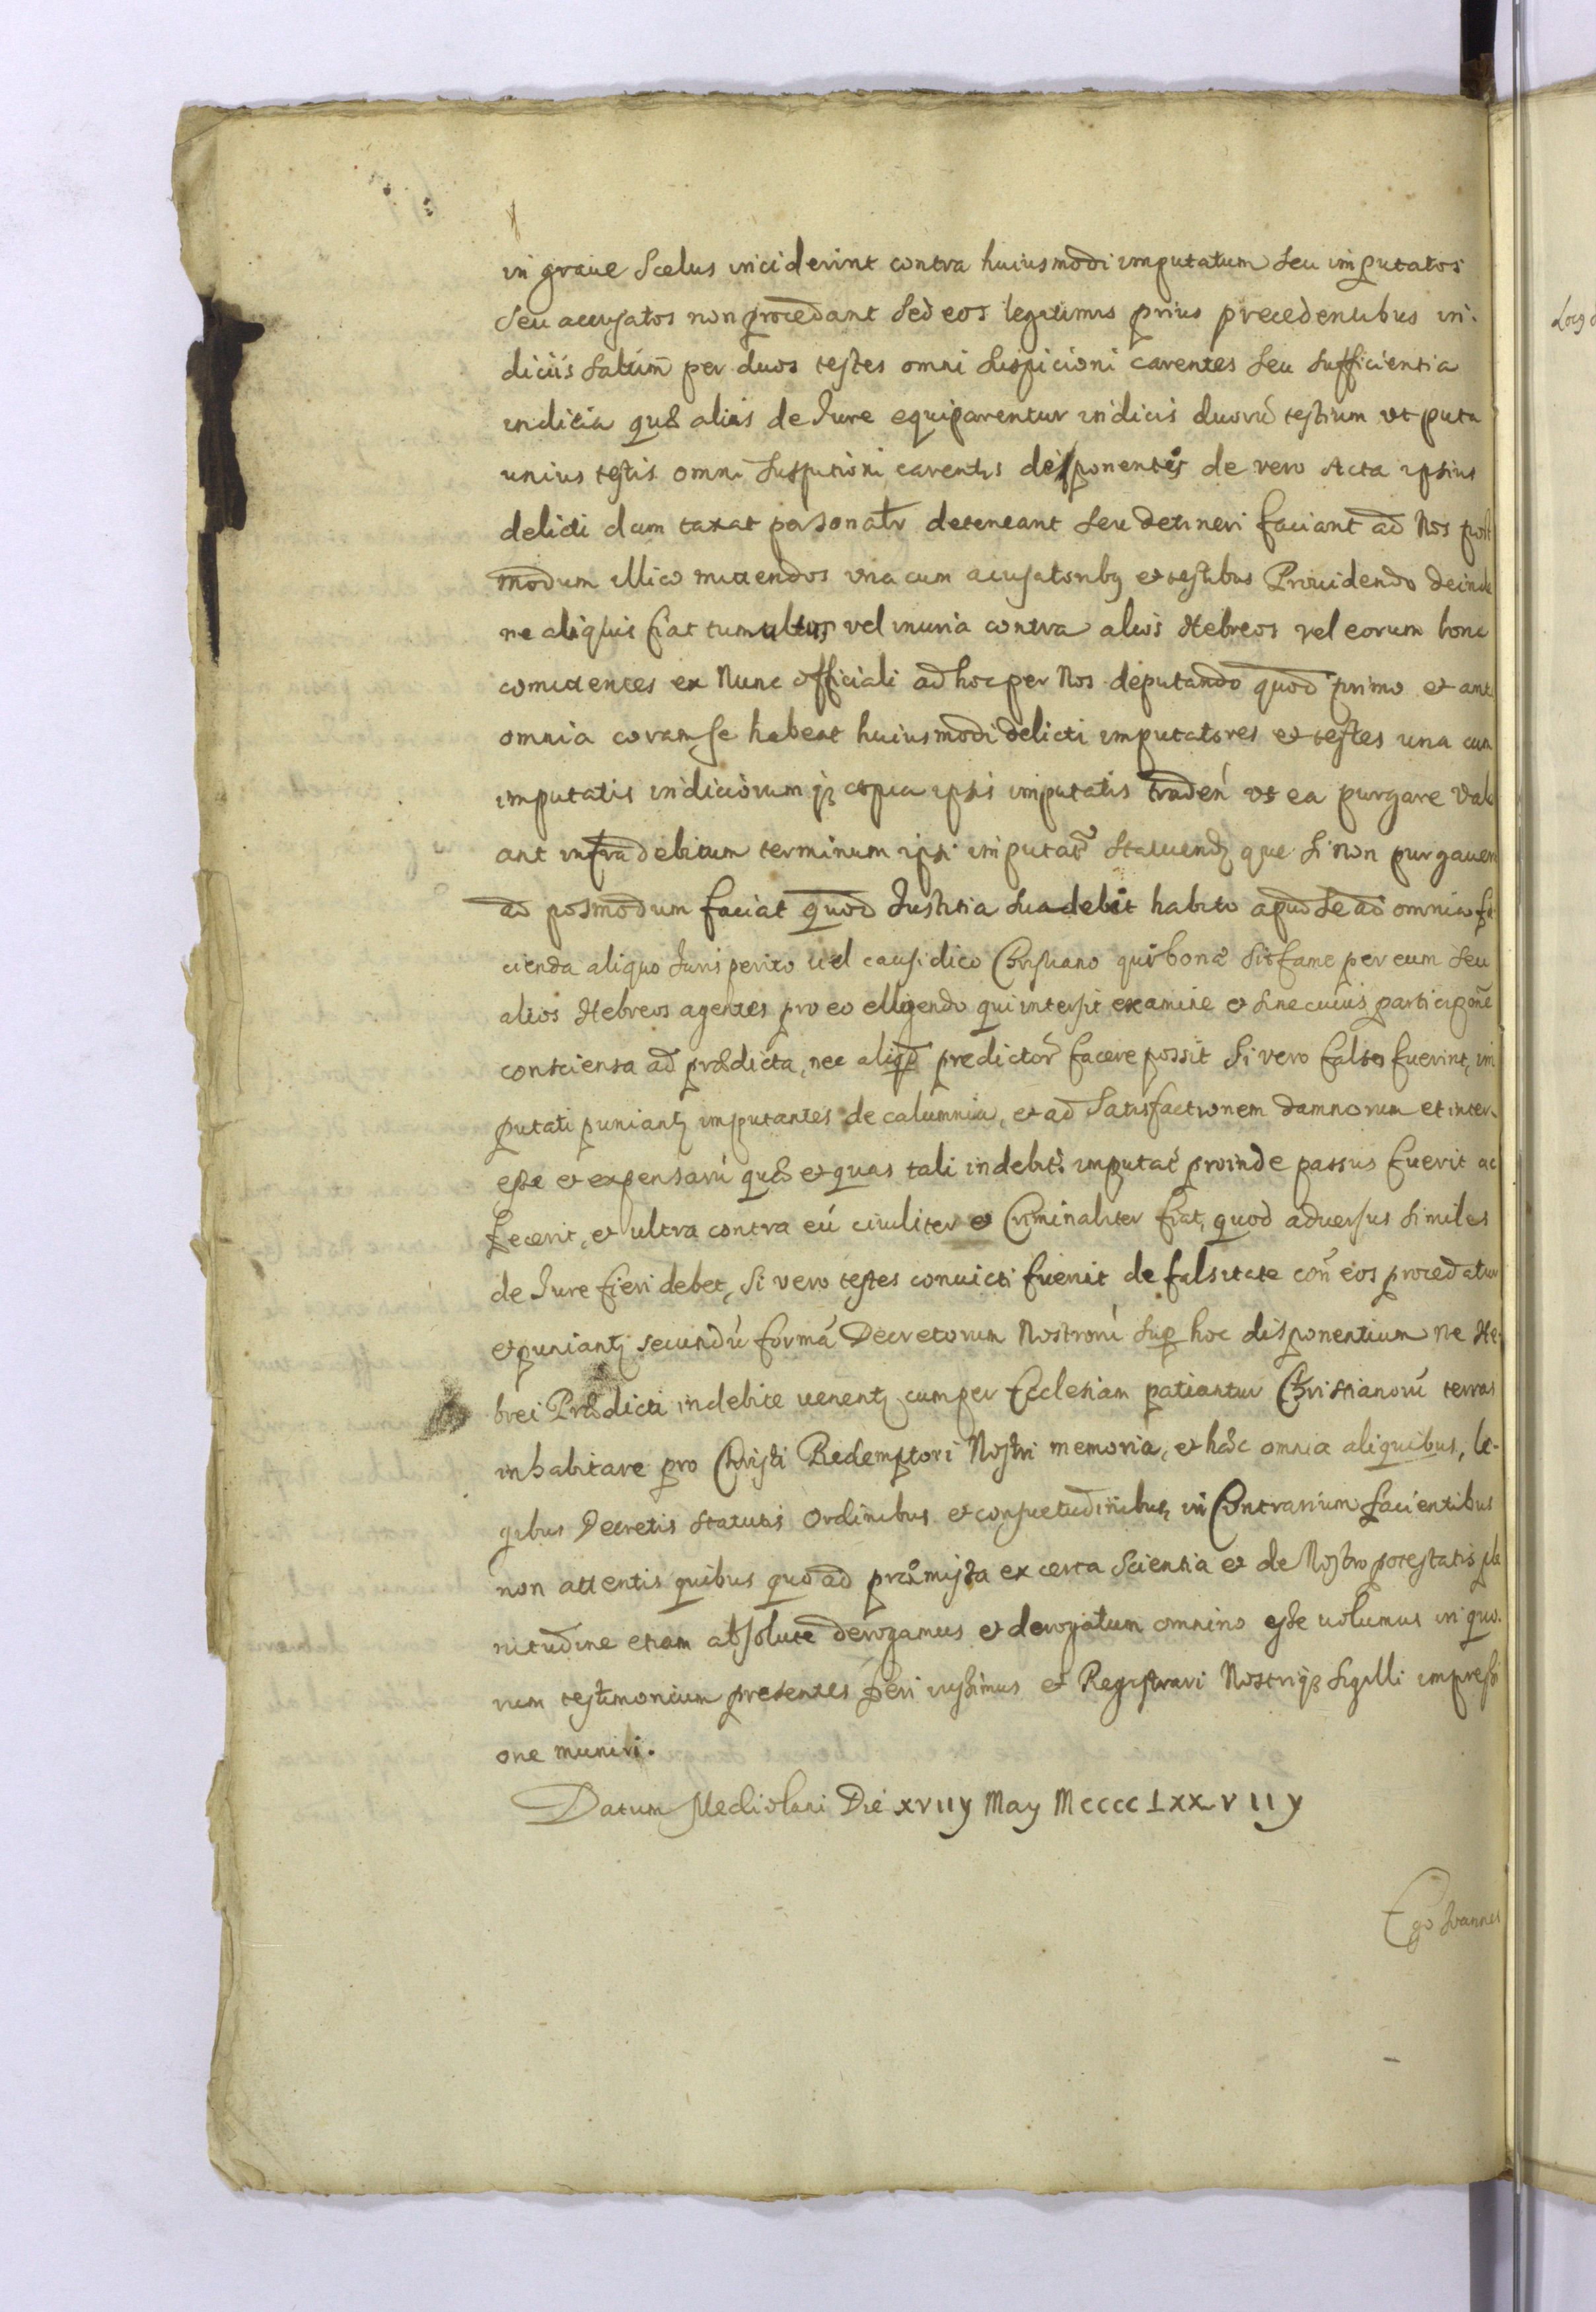 in graue Scelus inciderint contra huiusmodi imputatum seu imputatos
seu accusatos non procedant sed eos legitimis prius precedentibus in-
diciis saltim per duos testes omni suspicioni carentes seu sufficientia
indicia quæ alias de Jure equiparentur indiciis duorū testium ut puta
unius testis omni suspitioni carentis desponentis de vero Acta ipsius
delicti dum taxat personalr̄ deteneant seu detineri faciant ad Nos post
modum illico mittendos una cum acusatoribꝫ et testibus Prouidendo deinde
ne aliquis fiat tumultus vel iniuria contra alios Hebreos vel eorum bona
comittentes ex Nunc officiali ad hoc per Nos deputando quod primo et ante
omnia coram se habeat huiusmodi delicti imputatores et testes una cum
imputatis indiciorum qꝫ copia ipsis imputatis tradeń ut ea purgare vale
ant infra debitum terminum ipsi imputat̃ statuendꝫ que si non purgauer
ad posmodum faciat quod Justitia suadebit habito apud se ad omnia fa
cienda aliquo Jurisperito uel causidico Christiano qui bonæ sit fame per eum seu
alios Hebreos agentes pro eo elligendo qui intersit examine et sine cuius participōne
conscienta ad prædicta, nec aliqd̄ predictor̄ facere possit Si vero falso fuerint, im
putati puniantꝫ imputantes de calumnia, et ad satisfactionem damnorum et inter-
esse et expensarū quæ et quas tali indebitè imputat́ proinde passus fuerit ac
fecerit, et ultra contra eū ciuiliter et Criminaliter fiat, quod aduersus similes
de Jure fieri debet, Si vero testes conuicti fuerit de falsitate con̄ eos procedatur
et puniantꝫ secundū formā Decretorum Nostrorū sup̄ hoc disponentium ne He-
brei Prædicti indebite uexentꝫ cum per Ecclesiam patiantur Christianorū terras
inhabitare pro Christi Redemptori Nostri memoria, et hæc omnia aliquibus, le-
gibus Decretis statutis Ordinibus et consuetudinibus, in Contrarium facientibus
non attentis quibus quo ad præmissa ex certa Scientia et de Nostro potestatis ple
nitudine etiam absolute derogamus et derogatum omnino esse uolumus in quo-
rum testimonium presentes fieri iussimus et Registrari Nostriqꝫ sigilli impressi
one muniri.
Datum Mediolani Die xviiy May Mcccc Lxxviiy
Ego Joannes